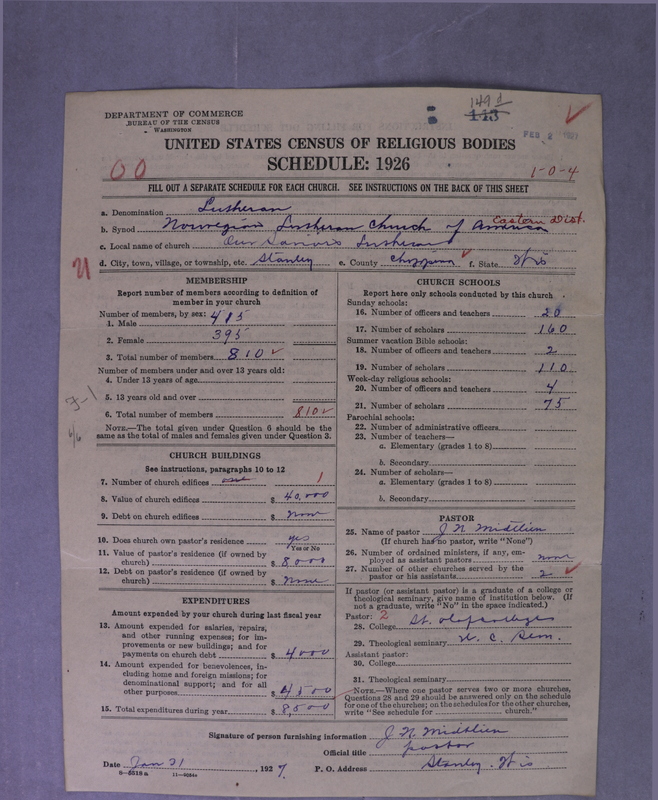 149 d
113
DEPARTMENT OF COMMERCE
BUREAU OF THE CENSUS
WASHINGTON
FEB 2 1927
UNITED STATES CENSUS OF RELIGIOUS BODIES
SCHEDULE: 1926
00
1-0-4
FILL OUT A SEPARATE SCHEDULE FOR EACH CHURCH. SEE INSTRUCTIONS ON THE BACK OF THIS SHEET
a. Denomination Lutheran
b. Synod Norwegian Lutheran Church of America Eastern Dist.
c. Local name of church Our Savior's Lutheran
d. City, town, village, or township, etc. Stanley e. County Chippewa f. State Wis
21
MEMBERSHIP
Report number of members according to definition of
member in your church
Number of members, by sex:
1. Male 415
2. Female 395
3. Total number of members 810
Number of members under and over 13 years old:
4. Under 13 years of age
5. 13 years old and over
6. Total number of members 810
NOTE.—The total given under Question 6 should be the
same as the total of males and females given under Question 3.
7-1
6/6
CHURCH BUILDINGS
See instructions, paragraphs 10 to 12
7. Number of church edifices one 1
8. Value of church edifices $ 40,000
9. Debt on church edifices $ none
10. Does church own pastor's residence yes
Yes or No
11. Value of pastor's residence (if owned by
church) $ 8,000
12. Debt on pastor's residence (if owned by
church) $ none
EXPENDITURES
Amount expended by your church during last fiscal year
13. Amount expended for salaries, repairs,
and other running expenses; for im-
provements or new buildings; and for
payments on church debt $ 4000
14. Amount expended for benevolences, in-
cluding home and foreign missions; for
denominational support; and for all
other purposes $ 4500
15. Total expenditures during year $ 8,500
CHURCH SCHOOLS
Report here only schools conducted by this church
Sunday schools:
16. Number of officers and teachers 20
17. Number of scholars 160
Summer vacation Bible schools:
18. Number of officers and teachers 2
19. Number of scholars 110
Week-day religious schools:
20. Number of officers and teachers 4
21. Number of scholars 75
Parochial schools:
22. Number of administrative officers
23. Number of teachers—
a. Elementary (grades 1 to 8)
b. Secondary
24. Number of scholars—
a. Elementary (grades 1 to 8)
b. Secondary
PASTOR
25. Name of pastor J. N. Midtlien
(If church has no pastor, write "None")
26. Number of ordained ministers, if any, em-
ployed as assistant pastors none
27. Number of other churches served by the
pastor or his assistants 2
If pastor (or assistant pastor) is a graduate of a college or
theological seminary, give name of institution below. (If
not a graduate, write "No" in the space indicated.)
Pastor: 2
28. College St. Olaf College
29. Theological seminary U. C. Sem.
Assistant pastor:
30. College
31. Theological seminary
NOTE.—Where one pastor serves two or more churches,
Questions 28 and 29 should be answered only on the schedule
for one of the churches; on the schedules for the other churches,
write "See schedule for church."
Signature of person furnishing information J. N. Midtlien
Official title pastor
Date Jan 21, 1927 P. O. Address Stanley. Wis
8—5518 a 11—9034a